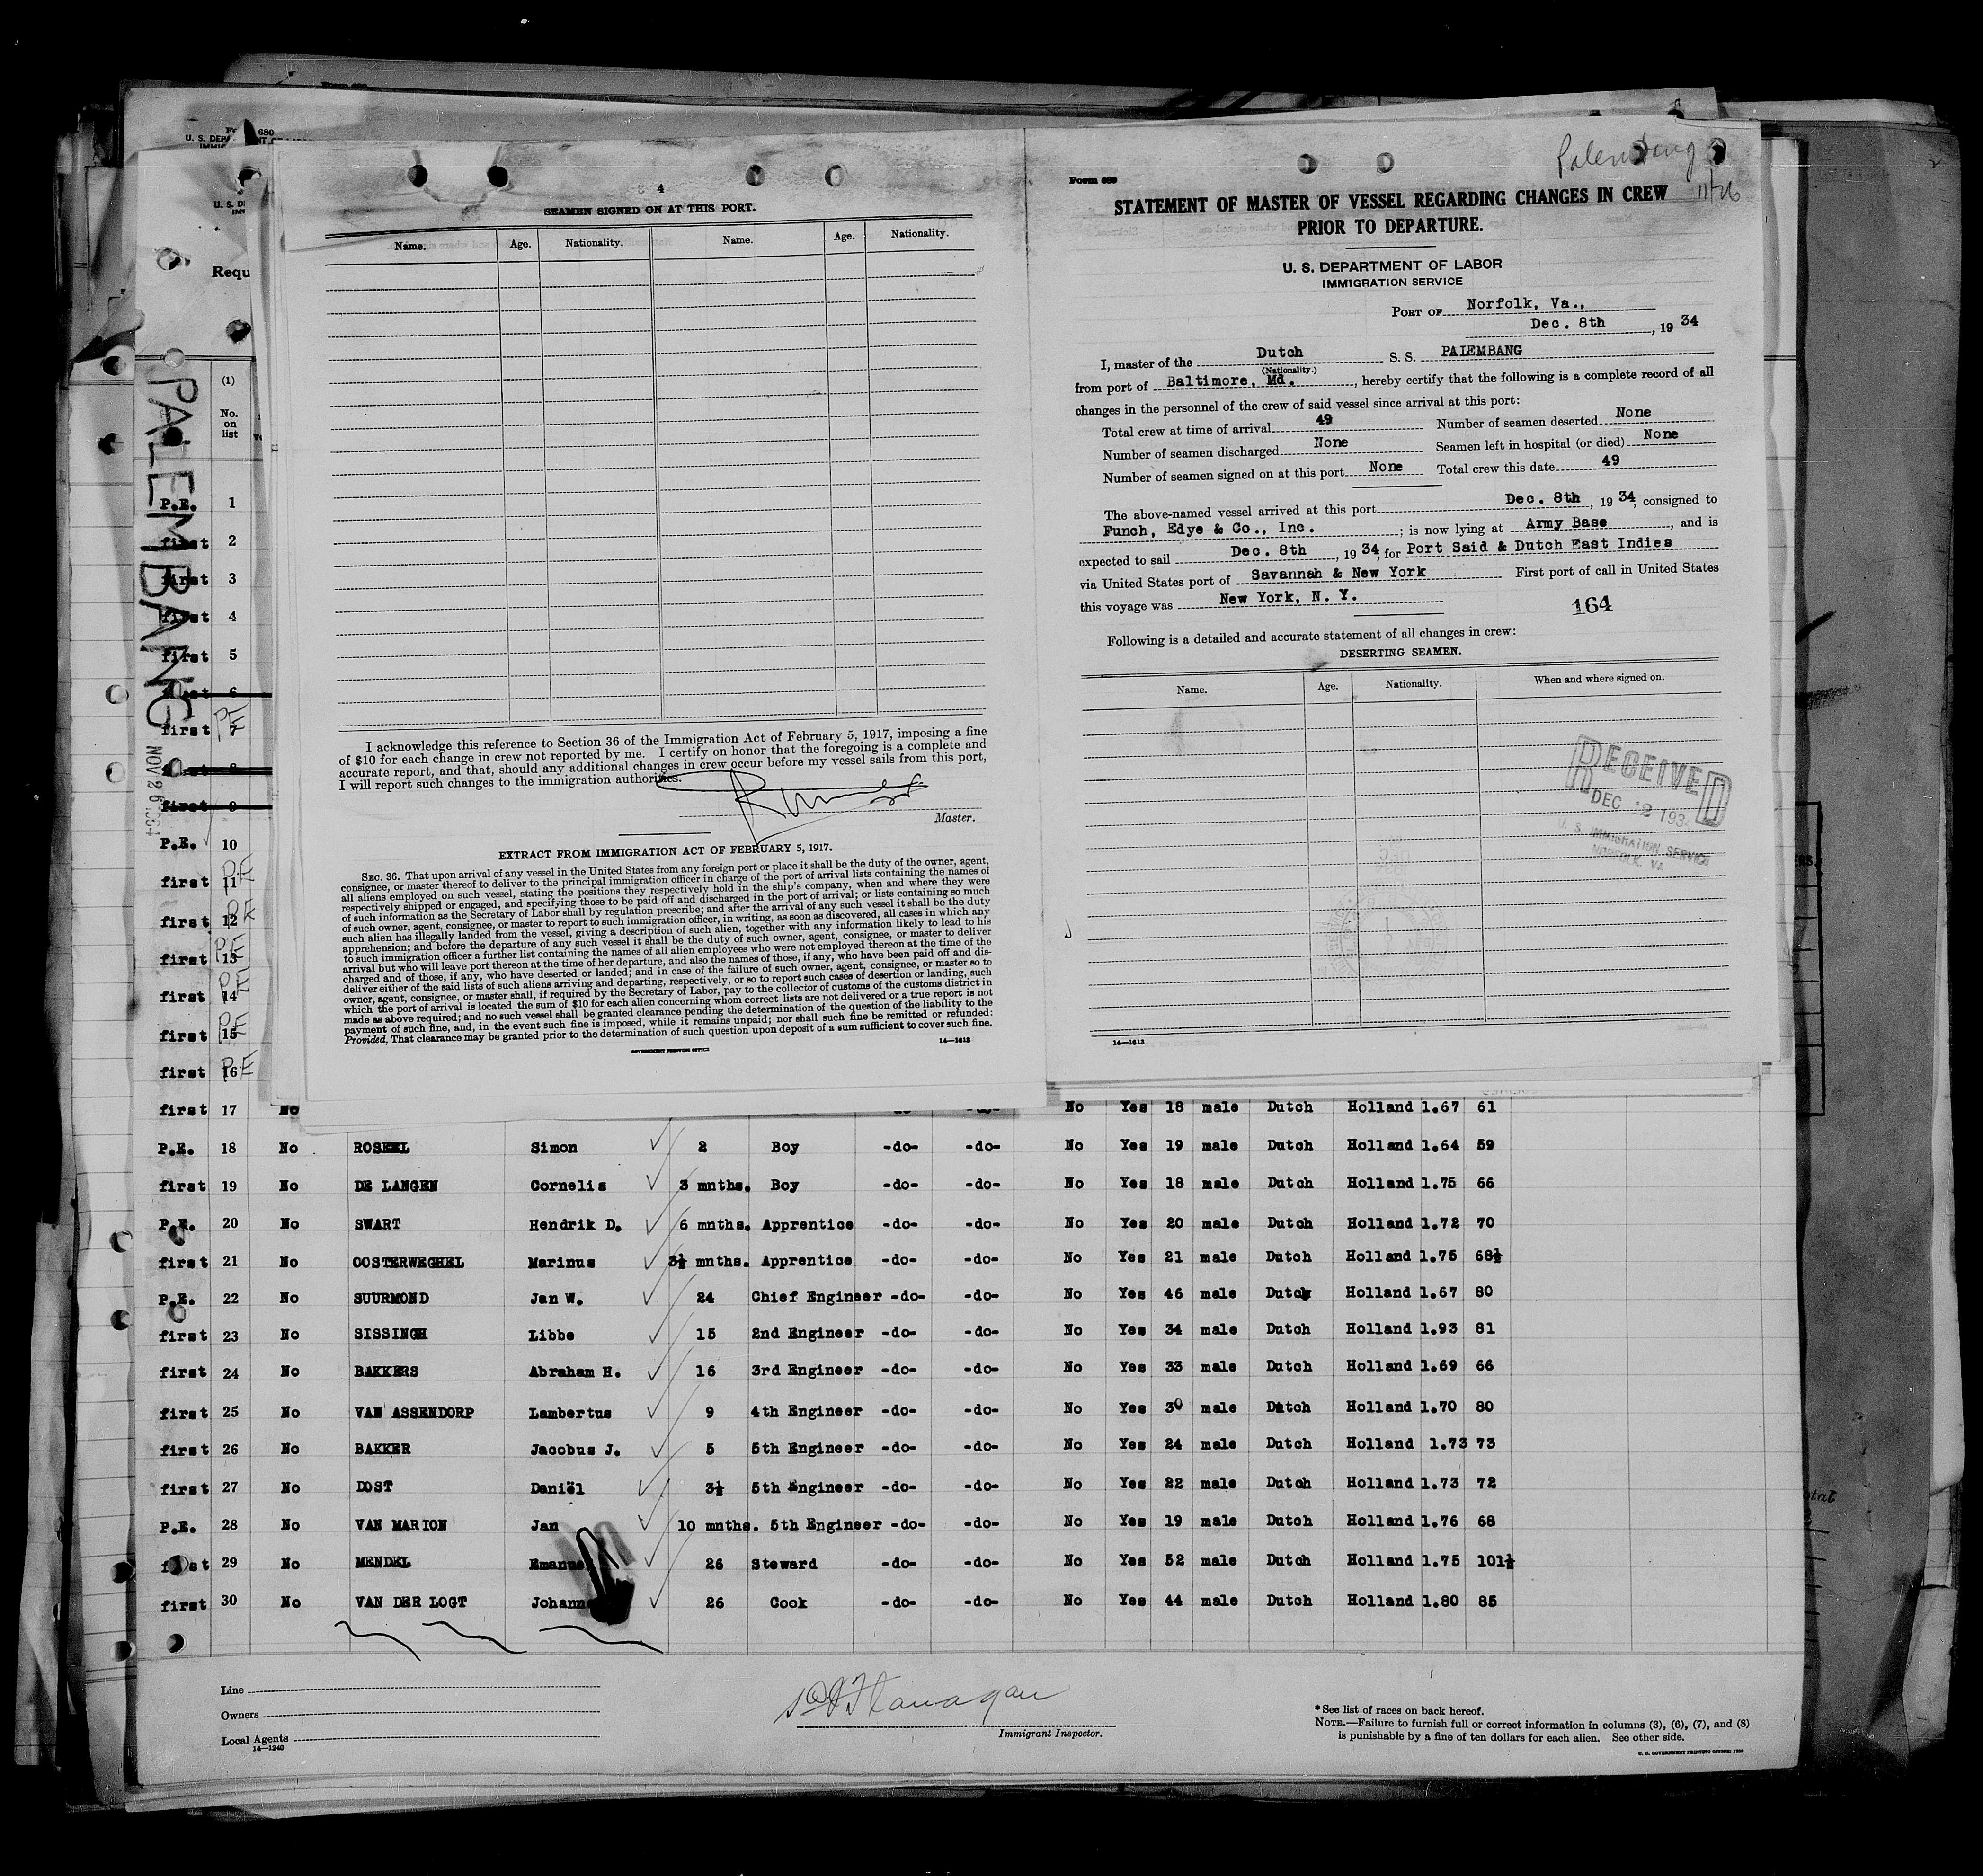 FO 680
U. S. DEPA
IMMIG
U. S. D
Requ
(1)
No.
on
list
PALEMBANG
NOV 26 1934
P.E. 1
first 2
first 3
first 4
first 5
first 6
first 7 PE
first 8
first 9
P.E. 10
first 11 PE
first 12 PE
first 13 PE
first 14 PE
first 15 PE
first 16 PE
4
SEAMEN SIGNED ON AT THIS PORT.
Name. Age. Nationality. Name. Age. Nationality.
I acknowledge this reference to Section 36 of the Immigration Act of February 5, 1917, imposing a fine
of $10 for each change in crew not reported by me. I certify on honor that the foregoing is a complete and
accurate report, and that, should any additional changes in crew occur before my vessel sails from this port,
I will report such changes to the immigration authorities.
Master.
EXTRACT FROM IMMIGRATION ACT OF FEBRUARY 5, 1917.
SEC. 36. That upon arrival of any vessel in the United States from any foreign port or place it shall be the duty of the owner, agent,
consignee, or master thereof to deliver to the principal immigration officer in charge of the port of arrival lists containing the names of
all aliens employed on such vessel, stating the positions they respectively hold in the ship's company, when and where they were
respectively shipped or engaged, and specifying those to be paid off and discharged in the port of arrival; or lists containing so much
of such information as the Secretary of Labor shall by regulation prescribe; and after the arrival of any such vessel it shall be the duty
of such owner, agent, consignee, or master to report to such immigration officer, in writing, as soon as discovered, all cases in which any
such alien has illegally landed from the vessel, giving a description of such alien, together with any information likely to lead to his
apprehension; and before the departure of any such vessel it shall be the duty of such owner, agent, consignee, or master to deliver
to such immigration officer a further list containing the names of all alien employees who were not employed thereon at the time of the
arrival but who will leave port thereon at the time of her departure, and also the names of those, if any, who have been paid off and dis-
charged and of those, if any, who have deserted or landed; and in case of the failure of such owner, agent, consignee, or master so to
deliver either of the said lists of such aliens arriving and departing, respectively, or so to report such cases of desertion or landing, such
owner, agent, consignee, or master shall, if required by the Secretary of Labor, pay to the collector of customs of the customs district in
which the port of arrival is located the sum of $10 for each alien concerning whom correct lists are not delivered or a true report is not
made as above required; and no such vessel shall be granted clearance pending the determination of the question of the liability to the
payment of such fine, and, in the event such fine is imposed, while it remains unpaid; nor shall such fine be remitted or refunded:
Provided, That clearance may be granted prior to the determination of such question upon deposit of a sum sufficient to cover such fine.
GOVERNMENT PRINTING OFFICE 14—1613
Palembang
11/26
Form 680
STATEMENT OF MASTER OF VESSEL REGARDING CHANGES IN CREW
PRIOR TO DEPARTURE.
U. S. DEPARTMENT OF LABOR
IMMIGRATION SERVICE
PORT OF Norfolk, Va.,
Dec. 8th, 19 34
I, master of the Dutch S. S. PALEMBANG
(Nationality.)
from port of Baltimore, Md. , hereby certify that the following is a complete record of all
changes in the personnel of the crew of said vessel since arrival at this port:
Total crew at time of arrival 49 Number of seamen deserted None
Number of seamen discharged None Seamen left in hospital (or died) None
Number of seamen signed on at this port None Total crew this date 49
The above-named vessel arrived at this port Dec. 8th , 19 34, consigned to
Funch, Edye & Co., Inc. ; is now lying at Army Base , and is
expected to sail Dec. 8th , 19 34, for Port Said & Dutch East Indies
via United States port of Savannah & New York First port of call in United States
this voyage was New York, N. Y.
164
Following is a detailed and accurate statement of all changes in crew:
DESERTING SEAMEN.
Name. Age. Nationality. When and where signed on.
RECEIVED
DEC 193
U. S. IMMIGRATION SERVICE
NORFOLK, VA
14—1613
first 17 No -do- -do- No Yes 18 male Dutch Holland 1.67 61
P.E. 18 No ROSKEL Simon 2 Boy -do- -do- No Yes 19 male Dutch Holland 1.64 59
first 19 No DE LANGEN Cornelis 3 mnths. Boy -do- -do- No Yes 18 male Dutch Holland 1.75 66
P.E. 20 No SWART Hendrik D. 6 mnths. Apprentice -do- -do- No Yes 20 male Dutch Holland 1.72 70
first 21 No OOSTERWEGHEL Marinus 3½ mnths. Apprentice -do- -do- No Yes 21 male Dutch Holland 1.75 68½
P.E. 22 No SUURMOND Jan W. 24 Chief Engineer -do- -do- No Yes 46 male Dutch Holland 1.67 80
first 23 No SISSINGH Libbe 15 2nd Engineer -do- -do- No Yes 34 male Dutch Holland 1.93 81
first 24 No BAKKERS Abraham H. 16 3rd Engineer -do- -do- No Yes 33 male Dutch Holland 1.69 66
first 25 No VAN ASSENDORP Lambertus 9 4th Engineer -do- -do- No Yes 30 male Dutch Holland 1.70 80
first 26 No BAKKER Jacobus J. 5 5th Engineer -do- -do- No Yes 24 male Dutch Holland 1.73 73
first 27 No DOST Daniël 3½ 5th Engineer -do- -do- No Yes 22 male Dutch Holland 1.73 72
P.E. 28 No VAN MARION Jan 10 mnths. 5th Engineer -do- -do- No Yes 19 male Dutch Holland 1.76 68
first 29 No MENDEL Emanue 26 Steward -do- -do- No Yes 52 male Dutch Holland 1.75 101½
first 30 No VAN DER LOGT Johann 26 Cook -do- -do- No Yes 44 male Dutch Holland 1.80 85
Line
Owners
Local Agents
14—1240
Flanagan
Immigrant Inspector.
* See list of races on back hereof.
NOTE.—Failure to furnish full or correct information in columns (3), (6), (7), and (8)
is punishable by a fine of ten dollars for each alien. See other side.
U. S. GOVERNMENT PRINTING OFFICE: